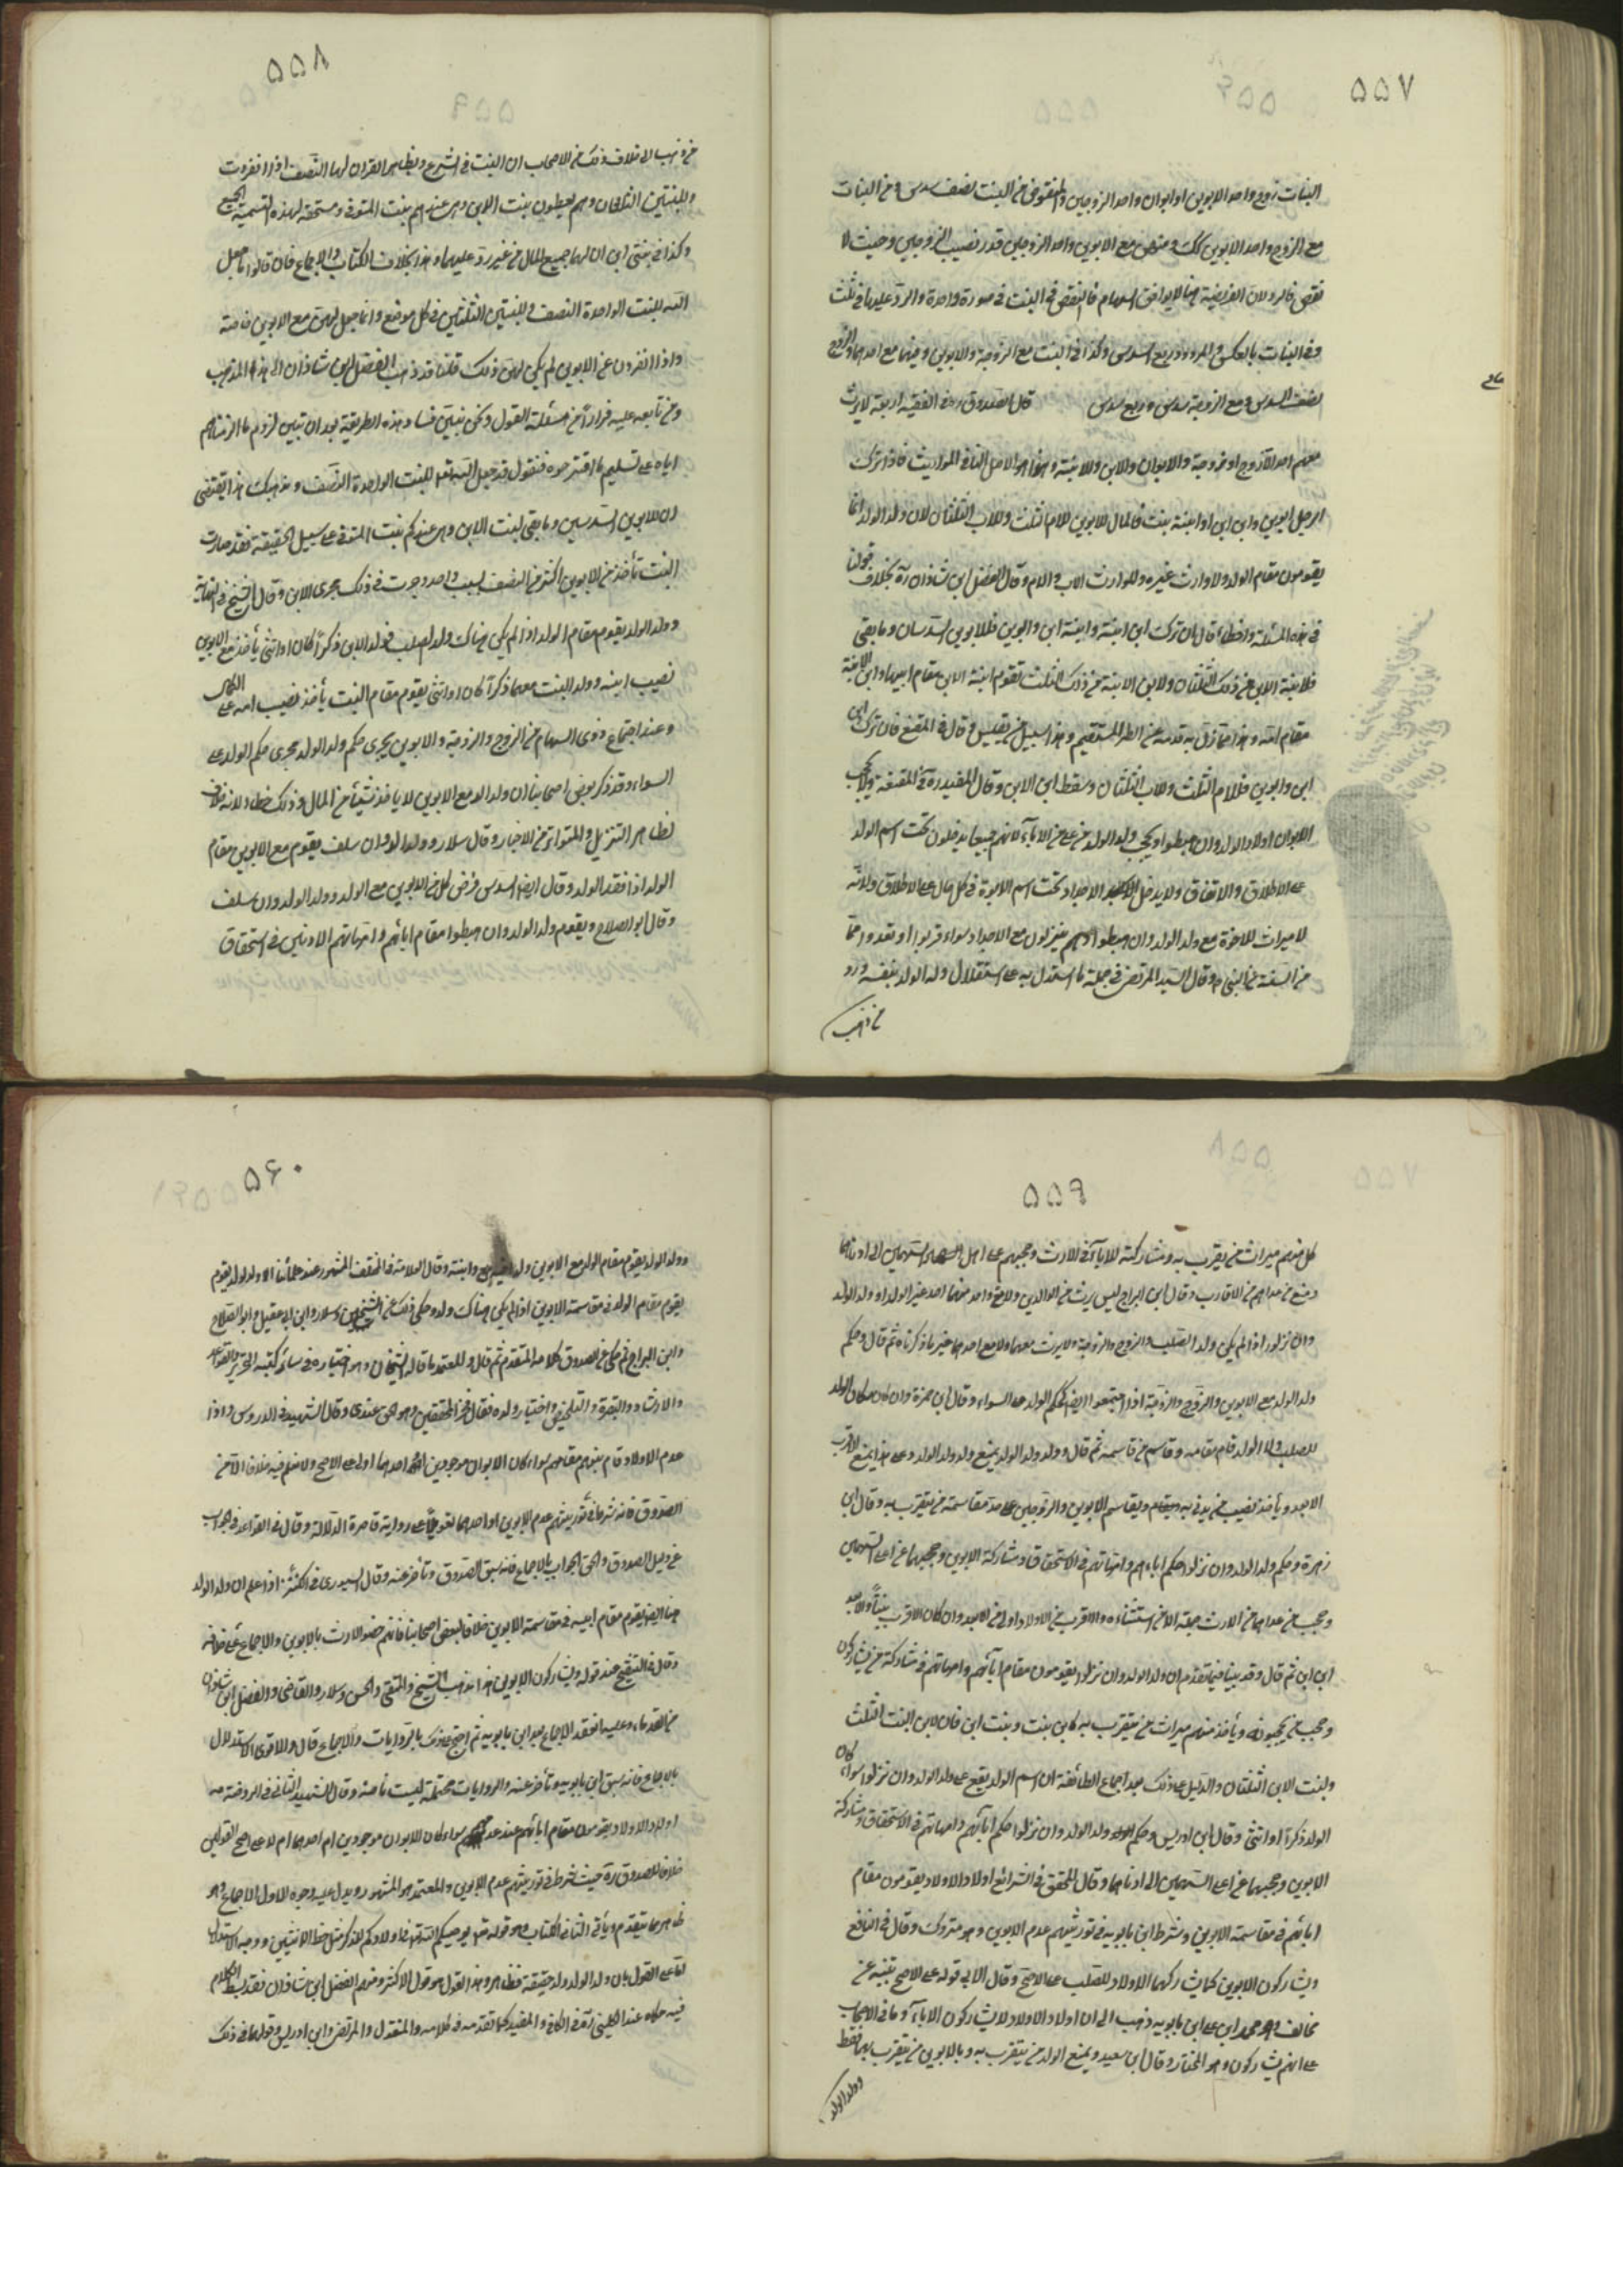 ۵۵۷
البنات زوج واحد الابوين او ابوان واحد الزوجين والمنقوض من البنت نصف سدس ومن البنات
مع الزوج واحد الابوين كك ومنهن مع الابوين واحد الزوجين قدر نصيب الزوجين وحيث لا
نقص فالرد لان الفريضة هنا لا يوافق السهام فالنقص في البنت في صورة واحدة والرد عليها في ثلث
وفي البنات بالعكس والمردود ربع السدس وكذا في البنت مع الزوجة والابوين ومنها مع احدهما والزوج
نصف السدس ومع الزوجة سدس وربع سدس قال الصدوق ره في الفقيه اربعة لا يرث
معهم احد الا زوج او زوجة والابوان والابن والابنة وهذا هو الاصل لنا في المواريث فاذا ترك
الرجل ابوين وابن ابن او ابنة بنت فالمال للابوين للام الثلث وللاب الثلثان لان ولد الولد انما
يقومون مقام الولد ولا وارث غيره والوارث الاب والام وقال الفضل ابن شاذان ره بخلاف قولنا
في هذه المسئلة واخطأ قال ان ترك ابن ابنة وابنة ابن وابوين فللابوين السدسان وما بقى
فلابنة الابن من ذلك الثلثان ولابن الابنة من ذلك الثلث تقوم ابنة الابن مقام ابيها وابن الابنة
مقام امه وهذا مما زل به قدمه عن الطريق المستقيم وهذا سبيل من يقيس وقال في المقنع فان ترك ابن
ابن وابوين فللام الثلث وللاب الثلثان وسقط ابن الابن وقال المفيد ره في المقنعة ولا يحجب
الابوان اولاد الولد وان هبطوا ويحجب ولد الولد من علا من الاباء لانهم جميعا يدخلون تحت اسم الولد
على الاطلاق والاتفاق ولا يدخل الاجداد تحت اسم الابوة في كل حال على الاطلاق ولانه
لا ميراث للاخوة مع ولد الولد وان هبطوا وهم ينزلون مع الاجداد سواء قربوا او بعدوا
من السنة عن النبى ص وقال السيد المرتضى في جملة ما استدل به على استقلال ولد الولد بنفسه ورد
من ذهب
۵۵۸
من ذهب الى خلاف ذلك من الاصحاب ان البنت في الشرع وبظاهر القران لها النصف اذا انفردت
وللبنتين الثلثان وهم يعطون بنت الابن وهى عندهم بنت المتوفى ومستحقة لهذه التسمية الجميع
وكذا في بنتى ابن ان لهما جميع المال من غير رد عليهما وهذا بخلاف الكتاب والاجماع فان قالوا ما جعل
الله للبنت الواحدة النصف وللبنتين الثلثين في كل موضع وانما جعل لهن مع الابوين خاصة
واذا انفردن عن الابوين لم يكن لهن ذلك قلنا قد ذهب الفضل ابن شاذان الى هذا المذهب
ومن تابعه عليه فرارا من مسئلة العول ونحن نبين فساد هذه الطريقة بعد ان نبين لزوم ما الزمناهم
اياه على تسليم ما اقترحوه فنقول قد جعل الله تعالى للبنت الواحدة النصف ومذهبك هذا يقتضى
ان للابوين السدسين وما بقى لبنت الابن وهى عندكم بنت المتوفى على سبيل الحقيقة فقد صارت
البنت تأخذ مع الابوين اكثر من النصف بسبب واحد وجرت في ذلك مجرى الابن وقال الشيخ في النهاية
وولد الولد يقوم مقام الولد اذا لم يكن هناك ولد لصلب فولد الابن ذكرا كان او انثى يأخذ مع الابوين
نصيب ابيه وولد البنت معهما ذكرا كان او انثى يقوم مقام البنت يأخذ نصيب امه على الكمال
وعند اجتماع ذوى السهام من الزوج والزوجة والابوين يجرى حكم ولد الولد مجرى حكم الولد على
السواء وقد ذكر بعض اصحابنا ان ولد الولد مع الابوين لا يأخذ شيئا من المال وذلك خطاء لانه خلاف
لظاهر التنزيل والمتواتر من الاخبار وقال سلار وولد الولد وان سلف يقوم مع الابوين مقام
الولد اذا فقد الولد وقال ايضا السدس فرض كل من الابوين مع الولد وولد الولد وان سلف
وقال ابو الصلاح ويقوم ولد الولد وان هبطوا مقام ابائهم وامهاتهم الادنين في استحقاق
۵۵۹
كل منهم ميراث من يقرب به ومشاركته للاباء في الارث وحجبهم على اهل السهمين الى ادناهما
ومنع من عداهم من الاقارب وقال ابن البراج ليس يرث مع الوالدين ولا مع واحد منهما احد غير الولد او ولد الولد
وان نزلوا اذا لم يكن ولد الصلب والزوج والزوجة ولا يرث معهما ولا مع احدهما غير ما ذكرناه ثم قال وحكم
ولد الولد مع الابوين والزوج والزوجة اذا اجتمعوا ايضا كحكم الولد على السواء وقال ابن حمزة وان كان مكان الولد
للصلب ولد الولد قام مقامه وقاسم من قاسمه ثم قال وولد ولد الولد يمنع ولد ولد الولد وعلى هذا يمنع الاقرب
الابعد ويأخذ نصيب من يدنى به ويقاسم الابوين والزوجين على حد مقاسمة من يتقرب به وقال ابن
زهرة وحكم ولد الولد وان نزلوا حكم اباءهم وامهاتهم في الاستحقاق ومشاركة الابوين وحجبهما عن اعلى السهمين
وحجب من عداهما من الارث جملة الا من استثناه والاقرب من الاولاد اولى من الابعد وان كان الاقرب بنتا والابعد
ابن ابن ثم قال وقد بينا فيما تقدم ان ولد الولد وان نزلوا يقومون مقام ابائهم وامهاتهم في مشاركة من يشاركون
وحجب من يحجبونه ويأخذ منهم ميراث من يتقرب به كابن بنت وبنت ابن فان لابن البنت الثلث
ولبنت الابن الثلثان والدليل على ذلك بعد اجماع الطائفة ان اسم الولد يقع على ولد الولد وان نزلوا سواء كان
الولد ذكرا او انثى وقال ابن ادريس وحكم ولد الولد وان نزلوا حكم ابائهم وامهاتهم في الاستحقاق ومشاركة
الابوين وحجبهما عن اعلى السهمين الى ادناهما وقال المحقق في الشرائع اولاد الاولاد يقومون مقام
ابائهم في مقاسمة الابوين وشرط ابن بابويه في توريثهم عدم الابوين وهو متروك وقال في النافع
ويشاركون الابوين كما يشاركهما الاولاد للصلب على الاصح وقال الابى قوله على الاصح تنبيه عن
مخالف وهو محمد ابن على ابن بابويه ذهب الى ان اولاد الاولاد لا يشاركون الاباء وباقى الاصحاب
على انهم يشاركون وهو المختار وقال ابن سعيد ويمنع الولد من يتقرب به وبالابوين من يتقرب بهما فقط
وولد الولد
۵۶۰
وولد الولد يقوم مقام الولد مع الابوين وابنته وقال العلامة في المختلف المشهور عند علمائنا ان ولد الولد يقوم
يقوم مقام الولد في مقاسمة الابوين اذا لم يكن هناك ولد وحكى ذلك عن الشيخين وسلار وابن ابى عقيل وابو الصلاح
وابن البراج ثم حكى عن الصدوق كلامه المتقدم ثم قال والمعتمد ما قاله الشيخان وهو اختياره في سائر كتبه التحرير والقواعد
والارشاد والتبصرة والتلخيص واختيار ولده فقال فخر المحققين وهو الحق عندى وقال الشهيد في الدروس واذا
عدم الاولاد قام بنوهم مقامهم سواء كان الابوان موجودين او احدهما اولا على الاصح ولا نعلم فيه خلافا الا من
الصدوق فانه شرط في توريثهم عدم الابوين او احدهما تعويلا على رواية قاصرة الدلالة وقال في القواعد في الجواب
عن دليل الصدوق والحق الجواب بالاجماع فانه سبق الصدوق وتأخر عنه وقال السيورى في الكنز اذا علم ان ولد الولد
هنا ايضا يقوم مقام ابيه في مقاسمة الابوين خلافا لبعض اصحابنا فانهم خصوا الارث بالابوين والاجماع على خلافه
وقال في التنقيح عند قوله ويشاركون الابوين هذا مذهب الشيخ والتقى والحسن وسلار والقاضى والفضل ابن شاذان
من القدماء وعليه انعقد الاجماع بعد ابن بابويه ثم احتج على ذلك بالروايات والاجماع قال والاقوى الاستدلال
بالاجماع فانه سبق ابن بابويه وتأخر عنه والروايات محتملة ليست ناصة وقال الشهيد الثانى في الروضة
اولاد الاولاد يقومون مقام ابائهم عند عدمهم سواء كان الابوان موجودين ام احدهما ام لا على اصح القولين
خلافا للصدوق ره حيث شرط في توريثهم عدم الابوين والمعتمد هو المشهور ويدل عليه وجوه الاول الاجماع وهو
ظاهر مما تقدم ويأتى الثانى الكتاب وهو قوله تعالى يوصيكم الله في اولادكم للذكر مثل حظ الانثيين ووجه الاستدلال
اما على القول بان ولد الولد ولد حقيقة فظاهر وهذا القول هو قول الاكثر ومنهم الفضل ابن شاذان فقد بسط الكلام
فيه حكاه عند الكلينى ره في الكافى والمفيد كما تقدم في كلامه والمنقول والمرتضى وابن ادريس وقولهما في ذلك